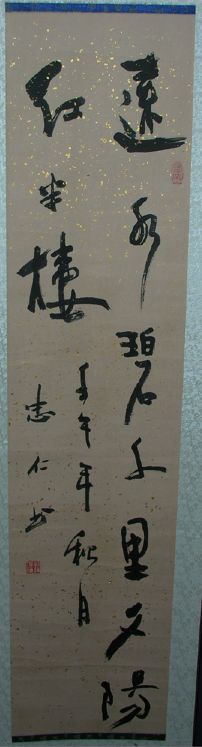 遠水碧千里夕陽
紅半樓
壬午年秋月
志仁书